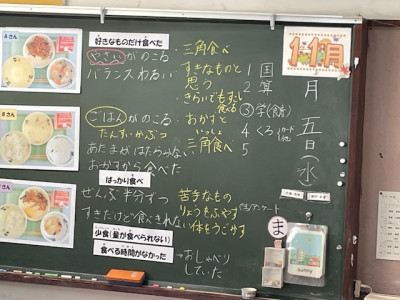 Aさん
好きなものだけ食べた
やさいがのこる
バランスわるい
・三角食べ
すきなものと
思う
・きらいでもすこし
食べる
さん
ごはんがのこる
たんすいかぶつ
あたまがはたらかない
おかずから食べた
おかずと
いっしょ
三角食べ
ばっかり食べ
さん
ぜんぶ半分ずつ
すきだけど食べきれない
苦手なもの
りょうをふやす
体をうごかす
少食(量が食べられない)
食べる時間がなかった
→おしゃべり
していた
1 国
2 算
③ 学(食育)
4 くろ
5
11月
月
五日(水)
ま
Sunny